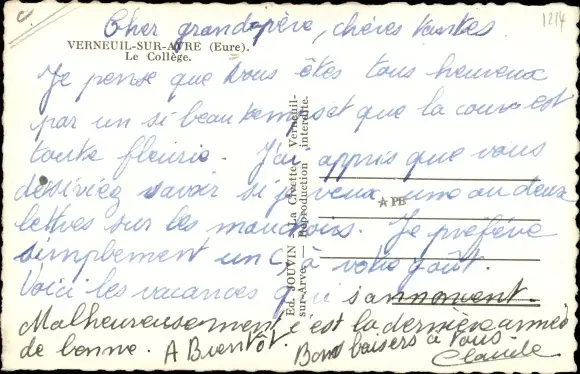 1214
Cher grandpère, chères tantes
VERNEUIL-SUR-AVRE (Eure).
Le Collège.
Je pense que vous êtes tous heureux
par un si beau temps et que la cour est
toute fleurie. J'ai appris que vous
désiriez savoir si je veux une ou deux
lettres sur les mouchoirs. Je préfère
simplement un C, à votre goût.
Voici les vacances qui s'annoncent.
Malheureusement c'est la dernière année
de bonne. A Bientôt. Bons baisers à vous
Claude
Ed. JOUVIN, La Civette, Verneuil-
sur-Avre. interdite.
PB